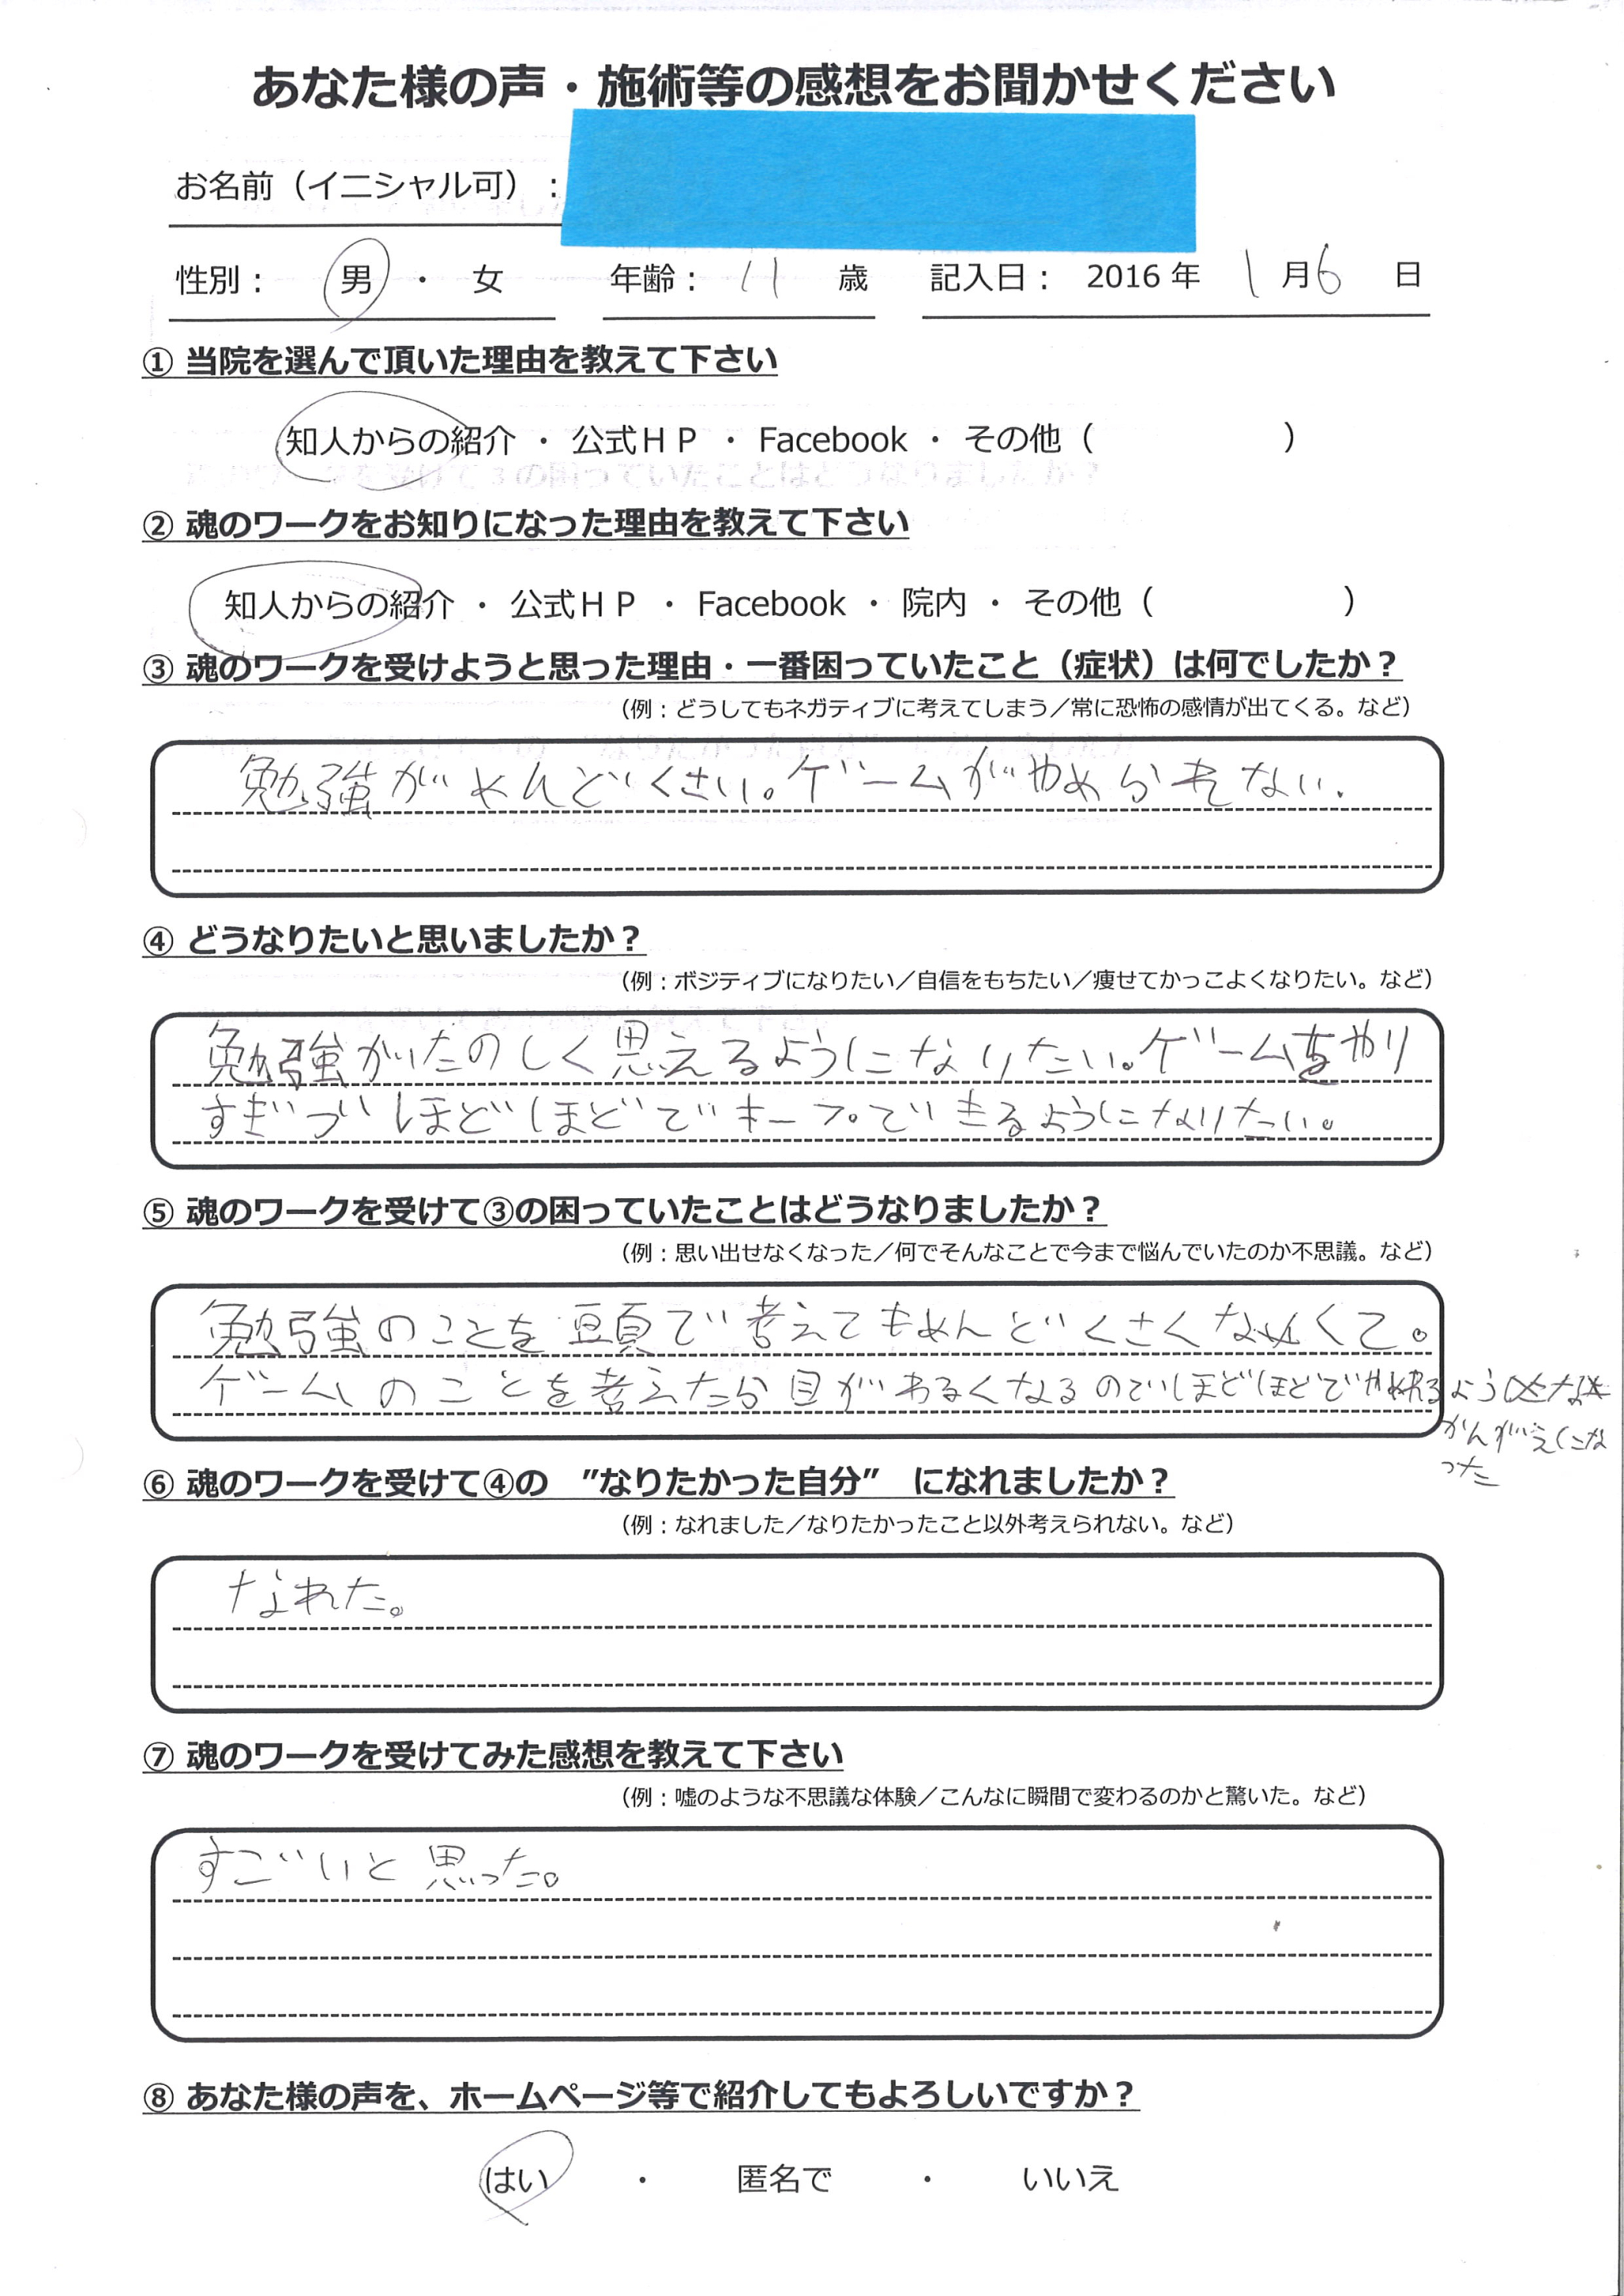 あなた様の声・施術等の感想をお聞かせください
お名前（イニシャル可）：
性別： 男 ・ 女 年齢： 11 歳 記入日： 2016 年 1 月 6 日
① 当院を選んで頂いた理由を教えて下さい
知人からの紹介 ・ 公式ＨＰ ・ Facebook ・ その他（ ）
② 魂のワークをお知りになった理由を教えて下さい
知人からの紹介 ・ 公式ＨＰ ・ Facebook ・ 院内 ・ その他（ ）
③ 魂のワークを受けようと思った理由・一番困っていたこと（症状）は何でしたか？
（例：どうしてもネガティブに考えてしまう／常に恐怖の感情が出てくる。など）
勉強がめんどくさい。ゲームがやめられない.
④ どうなりたいと思いましたか？
（例：ポジティブになりたい／自信をもちたい／痩せてかっこよくなりたい。など）
勉強がたのしく思えるようになりたい。ゲームをやり
すぎづほどほどでキープできるようになりたい。
⑤ 魂のワークを受けて③の困っていたことはどうなりましたか？
（例：思い出せなくなった／何でそんなことで今まで悩んでいたのか不思議。など）
勉強のことを頭で考えてもめんどくさくなくて。
ゲームのことを考えたら目がわるくなるのでほどほどでやめれるような
かんがえにな
った
⑥ 魂のワークを受けて④の ”なりたかった自分” になれましたか？
（例：なれました／なりたかったこと以外考えられない。など）
なれた。
⑦ 魂のワークを受けてみた感想を教えて下さい
（例：嘘のような不思議な体験／こんなに瞬間で変わるのかと驚いた。など）
すごいと思った。
⑧ あなた様の声を、ホームページ等で紹介してもよろしいですか？
はい ・ 匿名で ・ いいえ